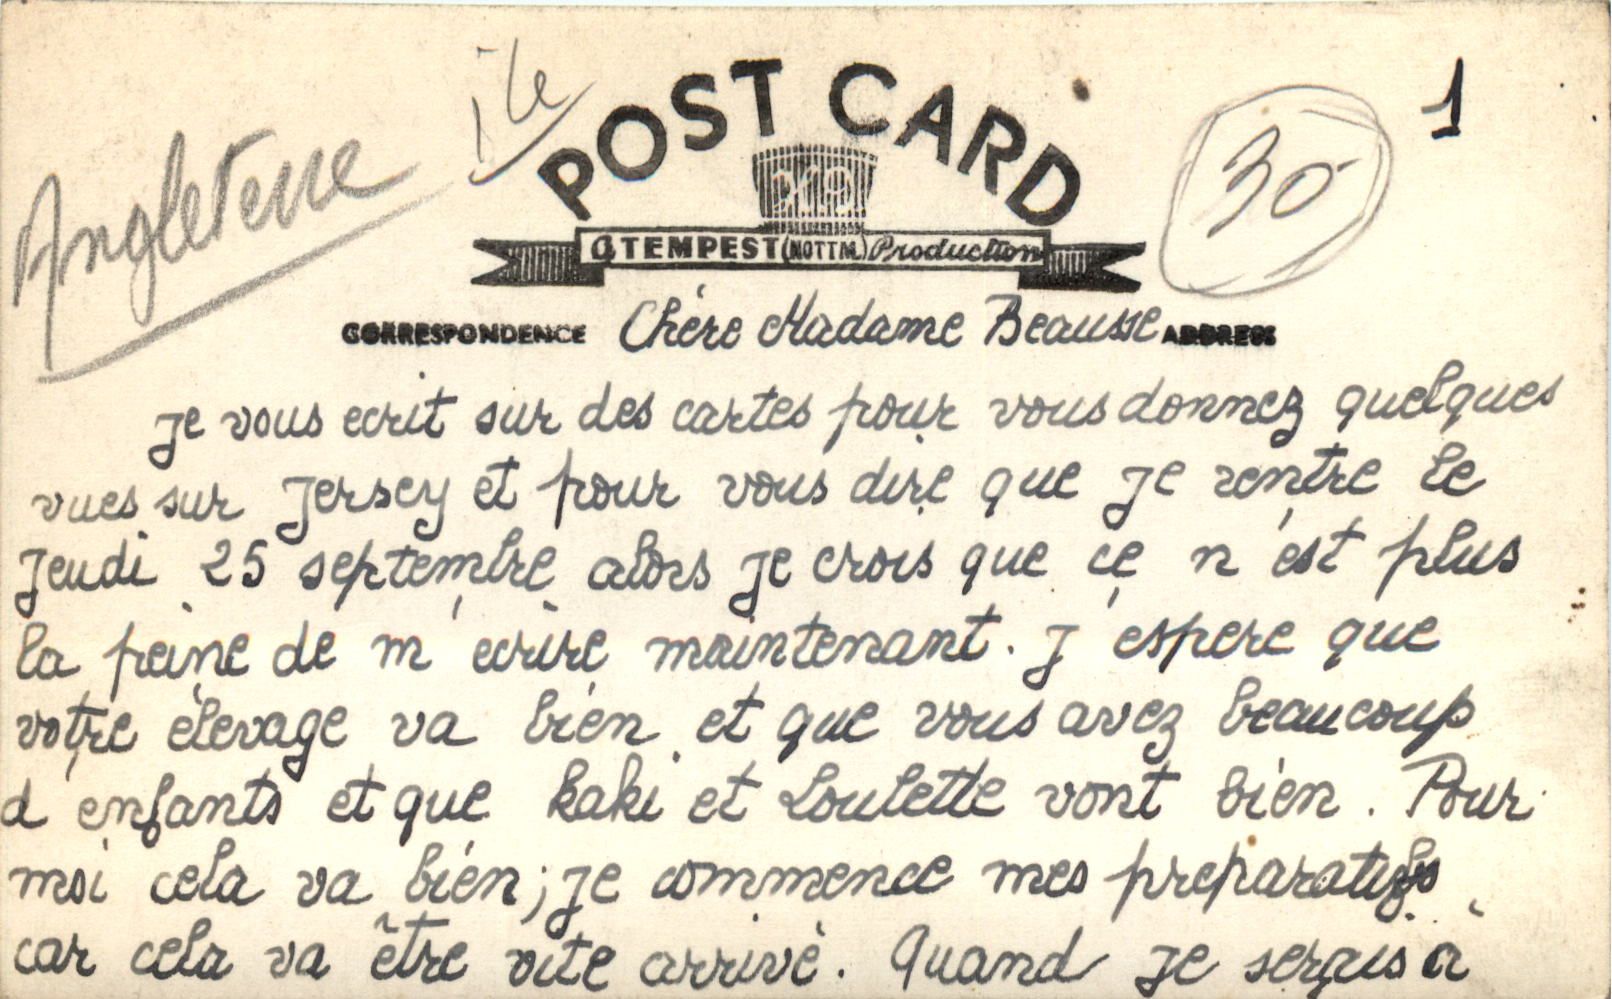 île
POST CARD
1
30
Angleterre
A TEMPEST (NOTTM.) Production
CORRESPONDENCE Chère Madame Beausse ADDRESS
je vous ecrit sur des cartes pour vous donnez quelques
vues sur Jersey et pour vous dire que je rentre le
Jeudi 25 septembre alors je crois que ce n'est plus
la peine de m'ecrire maintenant. J'espere que
votre élevage va bien et que vous avez beaucoup
d'enfants et que Kaki et Loulette vont bien. Pour
moi cela va bien; je commence mes preparatifs
car cela va être vite arrivé. Quand je serais à